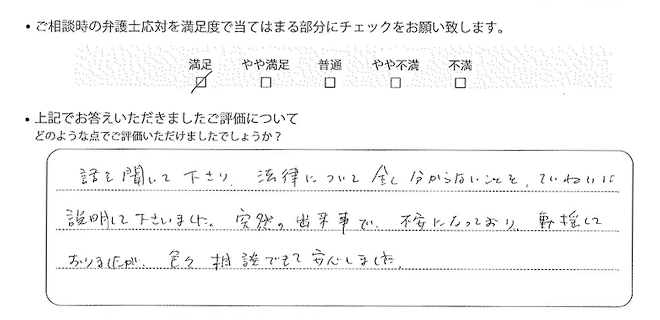 ・ご相談時の弁護士応対を満足度で当てはまる部分にチェックをお願い致します。
満足 やや満足 普通 やや不満 不満
・上記でお答えいただきましたご評価について
どのような点でご評価いただけましたでしょうか？
話を聞いて下さり、法律について全く分からないことを、ていねいに
説明して下さいました。突然の出来事で、不安になっており、動揺して
おりましたが、色々相談できて安心しました。